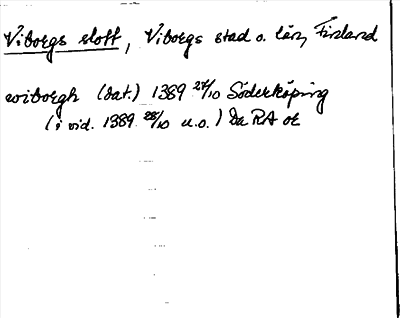 Viborgs slott, Viborgs stad o. län, Finland
wiborgh (dat.) 1389 27/10 Söderköping
(i vid. 1389 28/10 u.o.) Da RA or